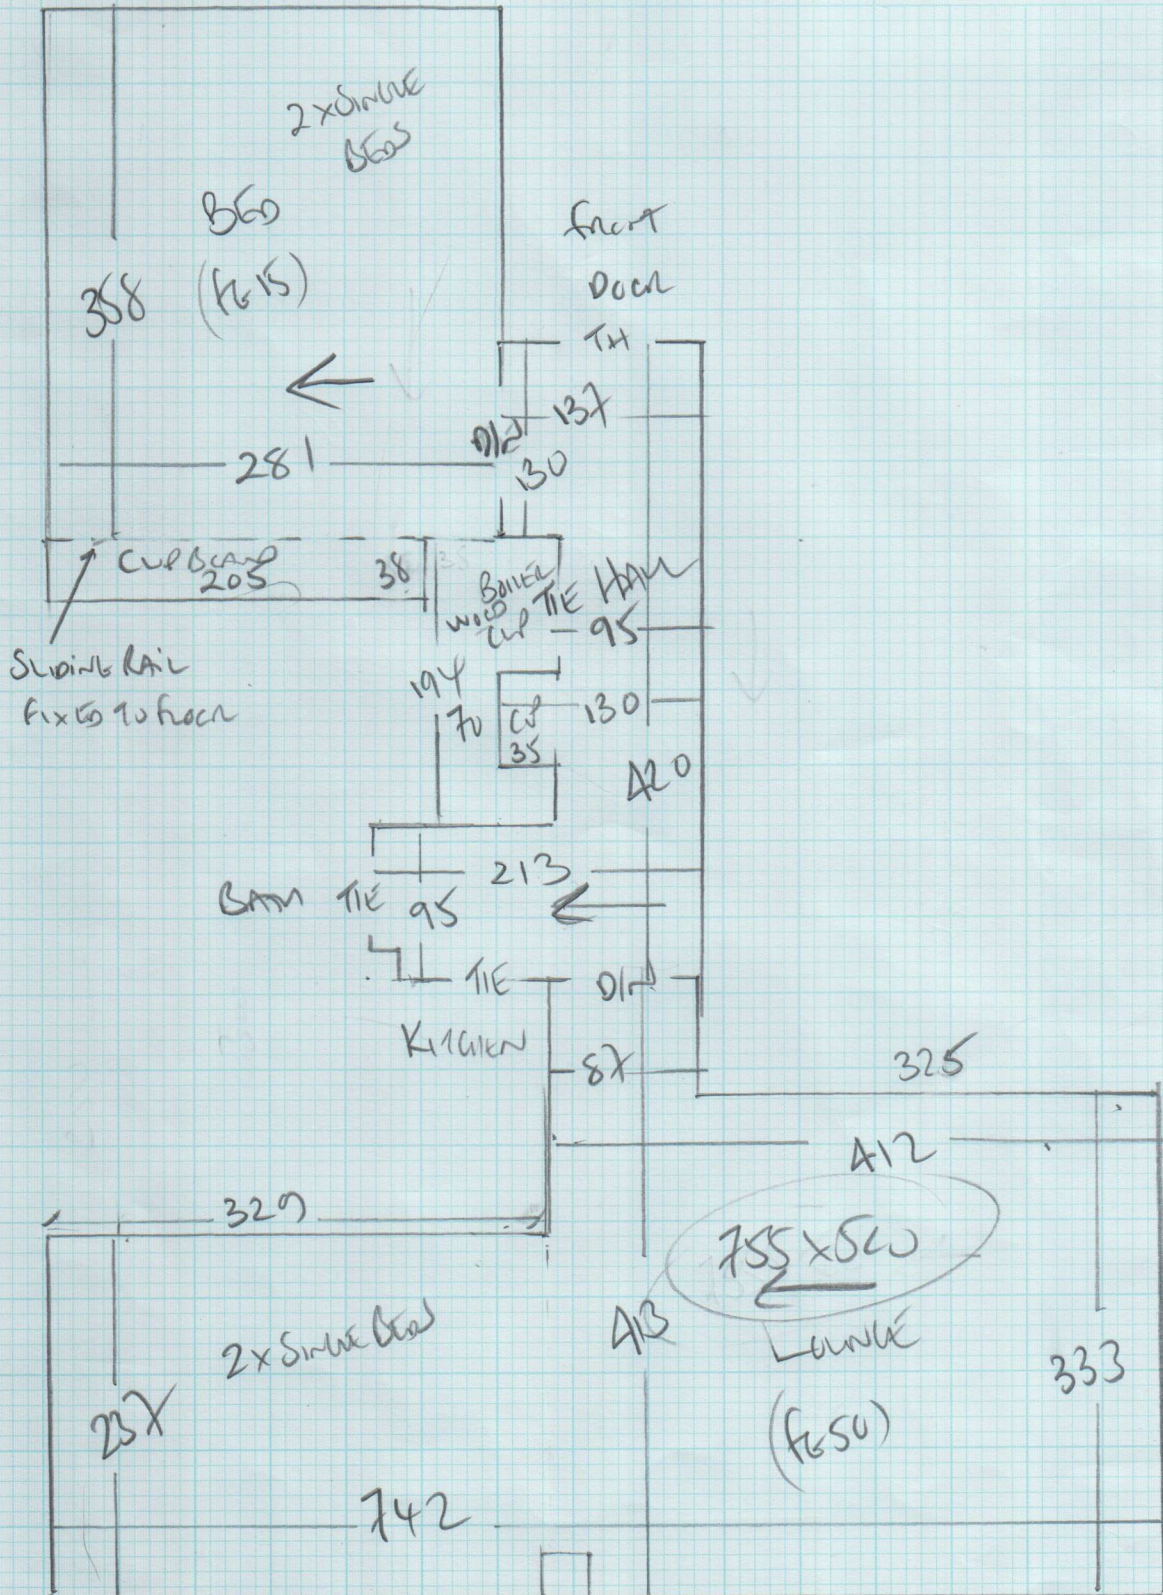 2 x SINGLE
BEDS
BED
(FG 15)
358
FRONT
DOOR
TH
137
D/W
130
281
CUPBOARD
205
38
35
BOILER
WOOD
CUP
TIE
HALL
95
SLIDING RAIL
FIXED TO FLOOR
194
70
CUP
35
130
420
213
BATH
TIE
95
TIE
D/W
KITCHEN
87
325
412
329
755 x 540
2 x SINGLE BEDS
413
LOUNGE
333
237
(FG 50)
742